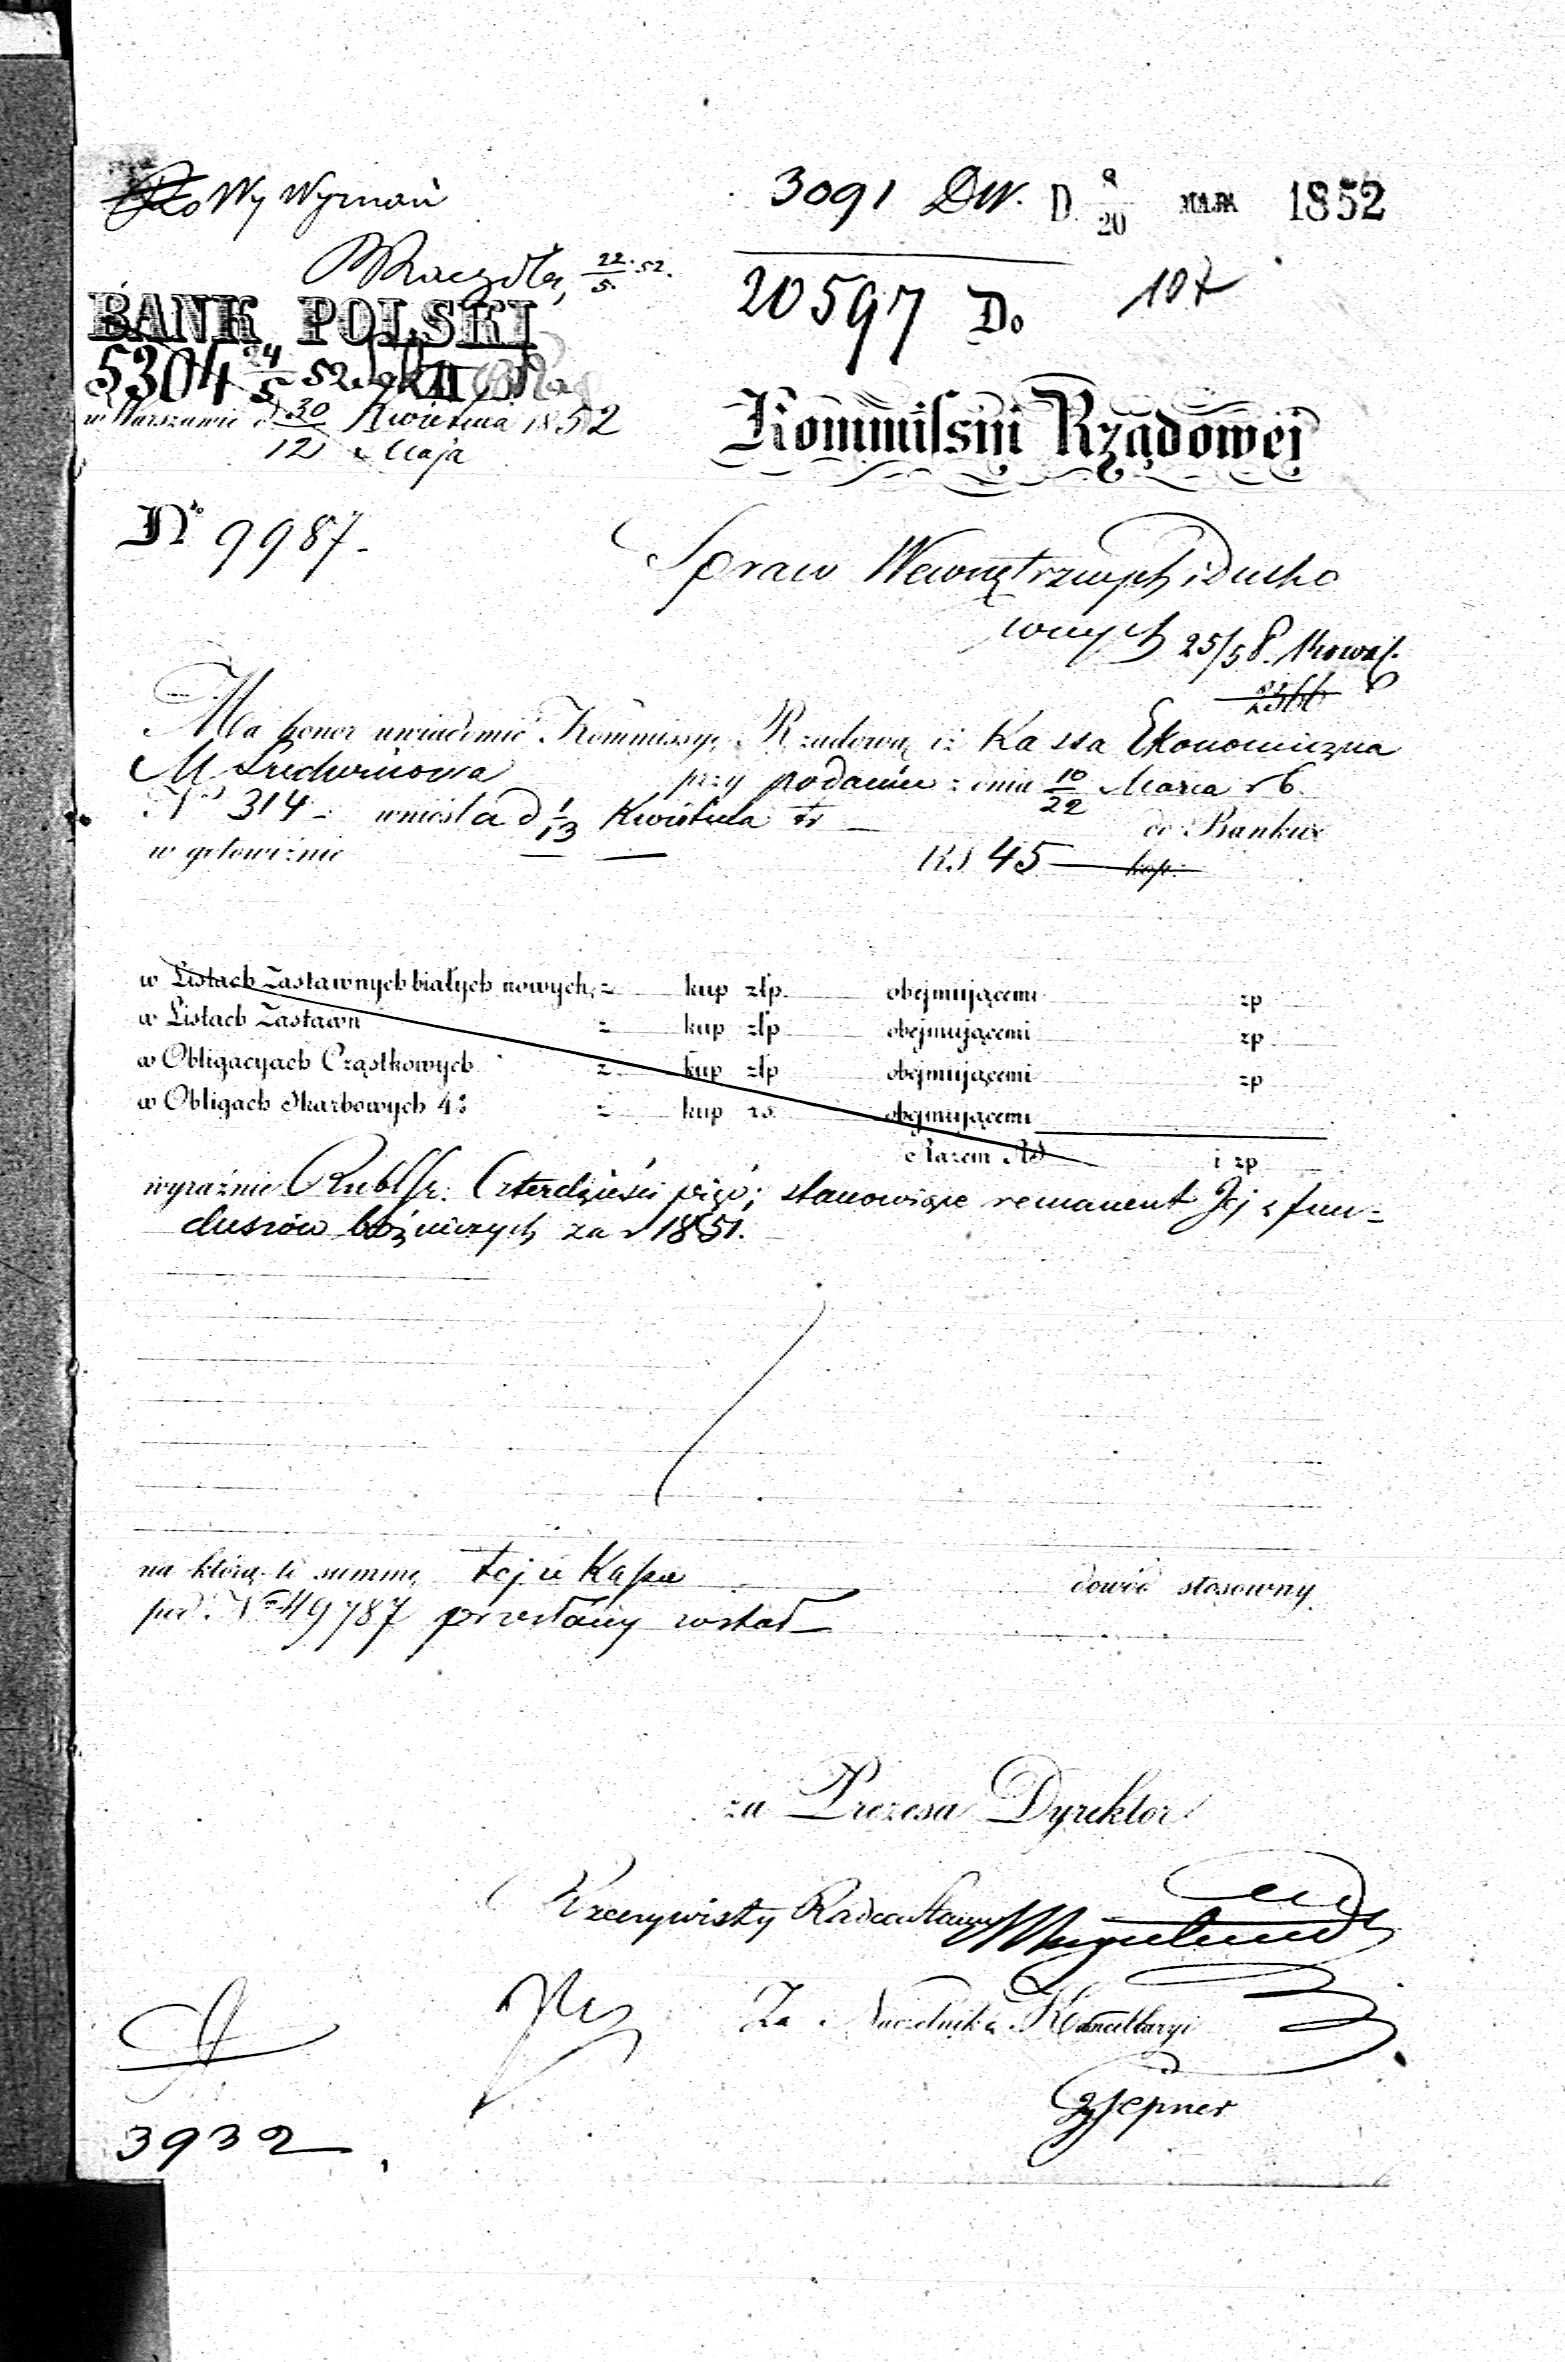 Wy Wyznań
3091 DW. D 8/20 MAJA 1852
22/5 52.
20597 Do 107
BANK POLSKI
5304 24/5 52
w Warszawie d 30/12 Kwietnia/Maja 1852
Kommissyi Rządowej
No 9987.
Spraw Wewnętrznych i Ducho
wnych 25/5 8.
2366
Ma honor uwiadomić Kommissyę Rządową iż Kassa Ekonomiczna
M. przy podaniu z dnia 10/22 Marca r b.
No 314 wniosła d 1/13 Kwietnia tr do Banku
w gotowiźnie RS 45 kop.
w Listach Zastawnych białych nowych, z kup złp. obejmującemi zp
w Listach Zastawn z kup złp obejmującemi zp
w Obligacyach Cząstkowych z kup złp obejmującemi zp
w Obligach Skarbowych 4% z kup rs obejmującemi
Razem RS i zp
wyraźnie Rubl sr. Czterdzieści pięć; stanowiące remanent Jej z fun=
duszów bóżniczych za r 1851.
na którą to summę tejże Kassie dowód stosowny
pod No 49787 przesłany został
za Prezesa Dyrektor
Rzeczywisty Radca Stanu
Za Naczelnika Kancellaryi
3932